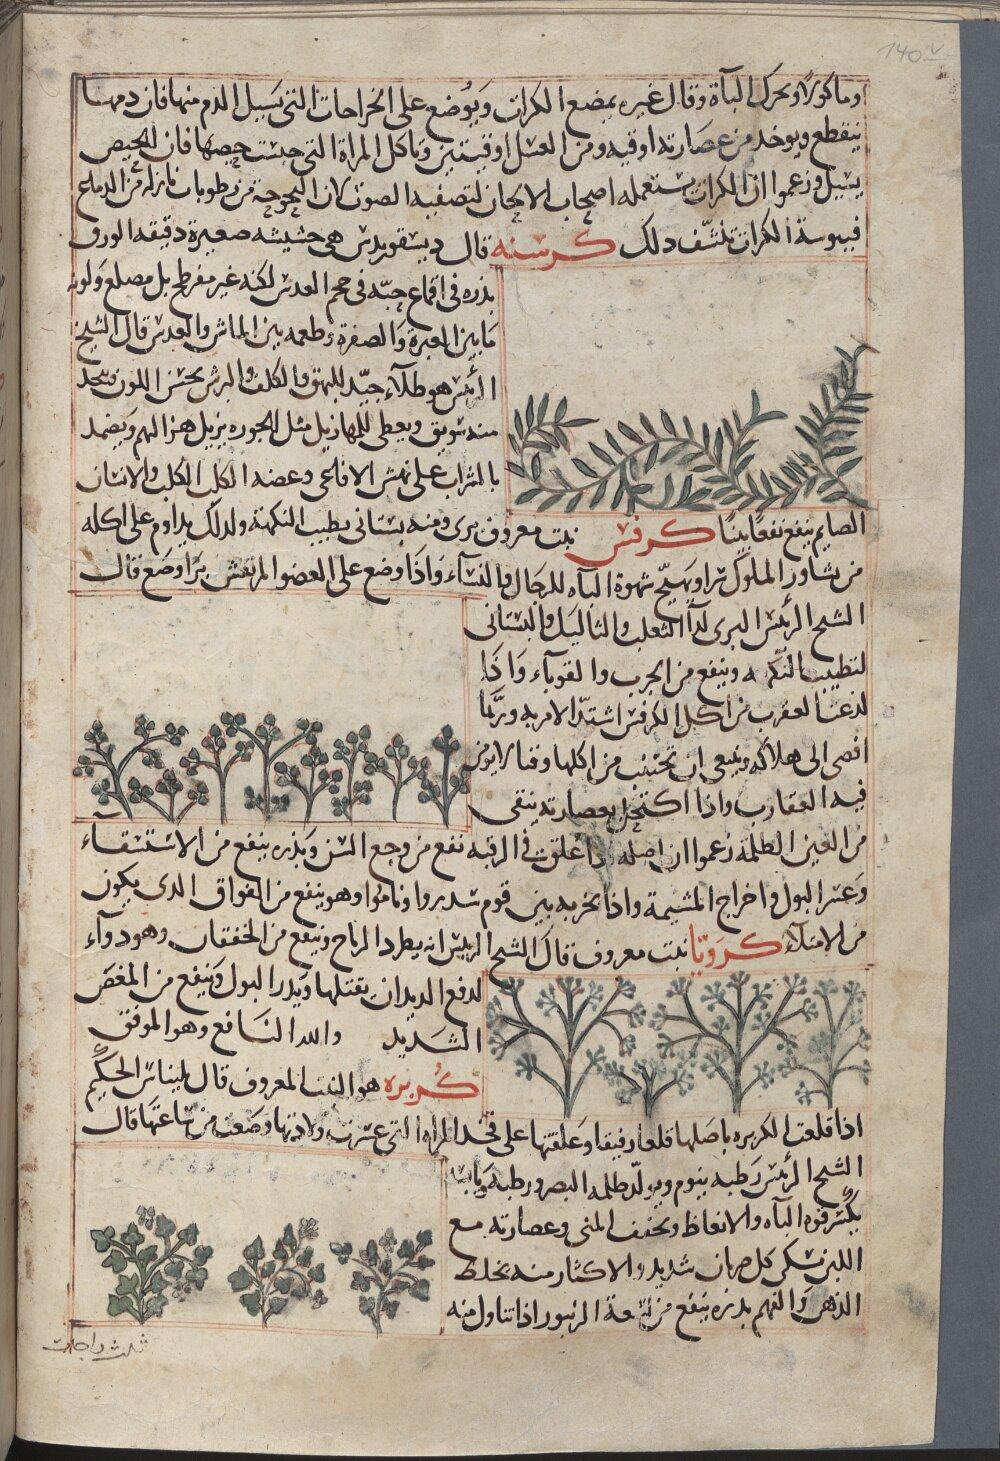 140v
اوماكورًا ويحرك الباة وقال غيره بمضغ الكراث ويوضع على الجراحات التى يسيل الدم منها فان دمها
ينقطع ويوخد من عصارته اوقيه ومن العسل اوقيتين وتاكل المراة التى حبست حيضها فان الحيض
يسيل وزعموا ان الكراث يستعمله اصحاب الالحان لتصفيه الصوت لان البحوحة من رطوبات نازله من الدماغ
فيبوسة الكراث تنشف دلك كرسنه قال ديسقوريدس هى حشيشه صغيرة دقيقه الورق
بذره فى اقماع حبّه فى حجم العدس لكنه غير مفرطح بل مصلع ولونه
ما بين الغبرة والصفرة وطعمه بين الماش والعدس قال الشيخ
الرئيس هو طلاء جيّد للبهق والكلف والبرش يحسن اللون ويتخد
منه سويق ويعطى للمهازيل مثل الجوزه يزيل هزالهم ويضمد
بالشراب على نهش الافاعى وعضه الكلب الكلب والانسان
الصايم ينفع نفعًا بينًا كرفس نبت معروف برى ومنه بستانى يطيب النكهة ولدلك يداوم على اكله
من يشاور الملوك سرا ويهيّج شهوة الباه للرجال والنسآء واذا وضع على العضو المرتعش برا وضع قال
الشيخ الرئيس البرى لدآ الثعلب والثاليل والبستانى
لتطييب النكهه وينفع من الجرب والقوبآء واذا
لدغت العقرب من اكل الكرفس اشتدّ الامر به وربّما
افضى الى هلاكه وينبغى ان تجتنب من اكلها وقتا لا يومن
فيه العقارب واذا اكتحل بعصارته ينقى
من العين الظلمة زعموا ان اصله اذا علق فى الرقبه نفع من وجع السن وبذره ينفع من الاستسقآء
وعسر البول واخراج المشيمة واذا بخر به بين قوم سدروا وناموا وهو ينفع من الفواق الدى يكون
من الامتلآء كرويّا نبت معروف قال الشيخ الرييس انه يطرد الرياح وينفع من الخفقان وهو دوآء
لدفع الديدان يقتلها ويدر البول وينفع من المغص
الشديد والله النافع وهو الموفق
كزبره هو النبت المعروف قال بليناس الحكيم
اذا قلعت الكزبره باصلها قلعا رفيقا وعلقتها على فخد المراه التى عسرت ولادتها وضعت من ساعتها قال
الشيخ الرئيس رطبه ينوم ويولّد ظلمه البصر ورطبه ويابسه
يكسر قوة الباه والانعاظ ويجفف المنى وعصارته مع
اللبن يسكن كل ضربان شديد والاكثار منه يخلط
الدهن والفهم بدره ينفع من لسعة الزنبور اذا تناول منه
ثلث راحات